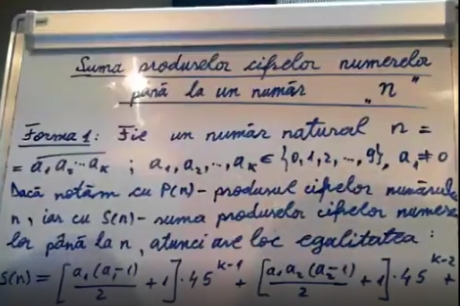 Suma produselor cifrelor numerelor
până la un număr „n"
Forma 1: Fie un număr natural n =
= a₁a₂...aₖ ; a₁, a₂, ..., aₖ ∈ {0, 1, 2, ..., 9}, a₁ ≠ 0
Dacă notăm cu P(n) - produsul cifrelor numărului
n, iar cu S(n) - suma produselor cifrelor numere
lor până la n, atunci are loc egalitatea:
S(n) = [a₁(a₁-1)/2 + 1]·45ᵏ⁻¹ + [a₁a₂(a₂-1)/2 + 1]·45ᵏ⁻² +